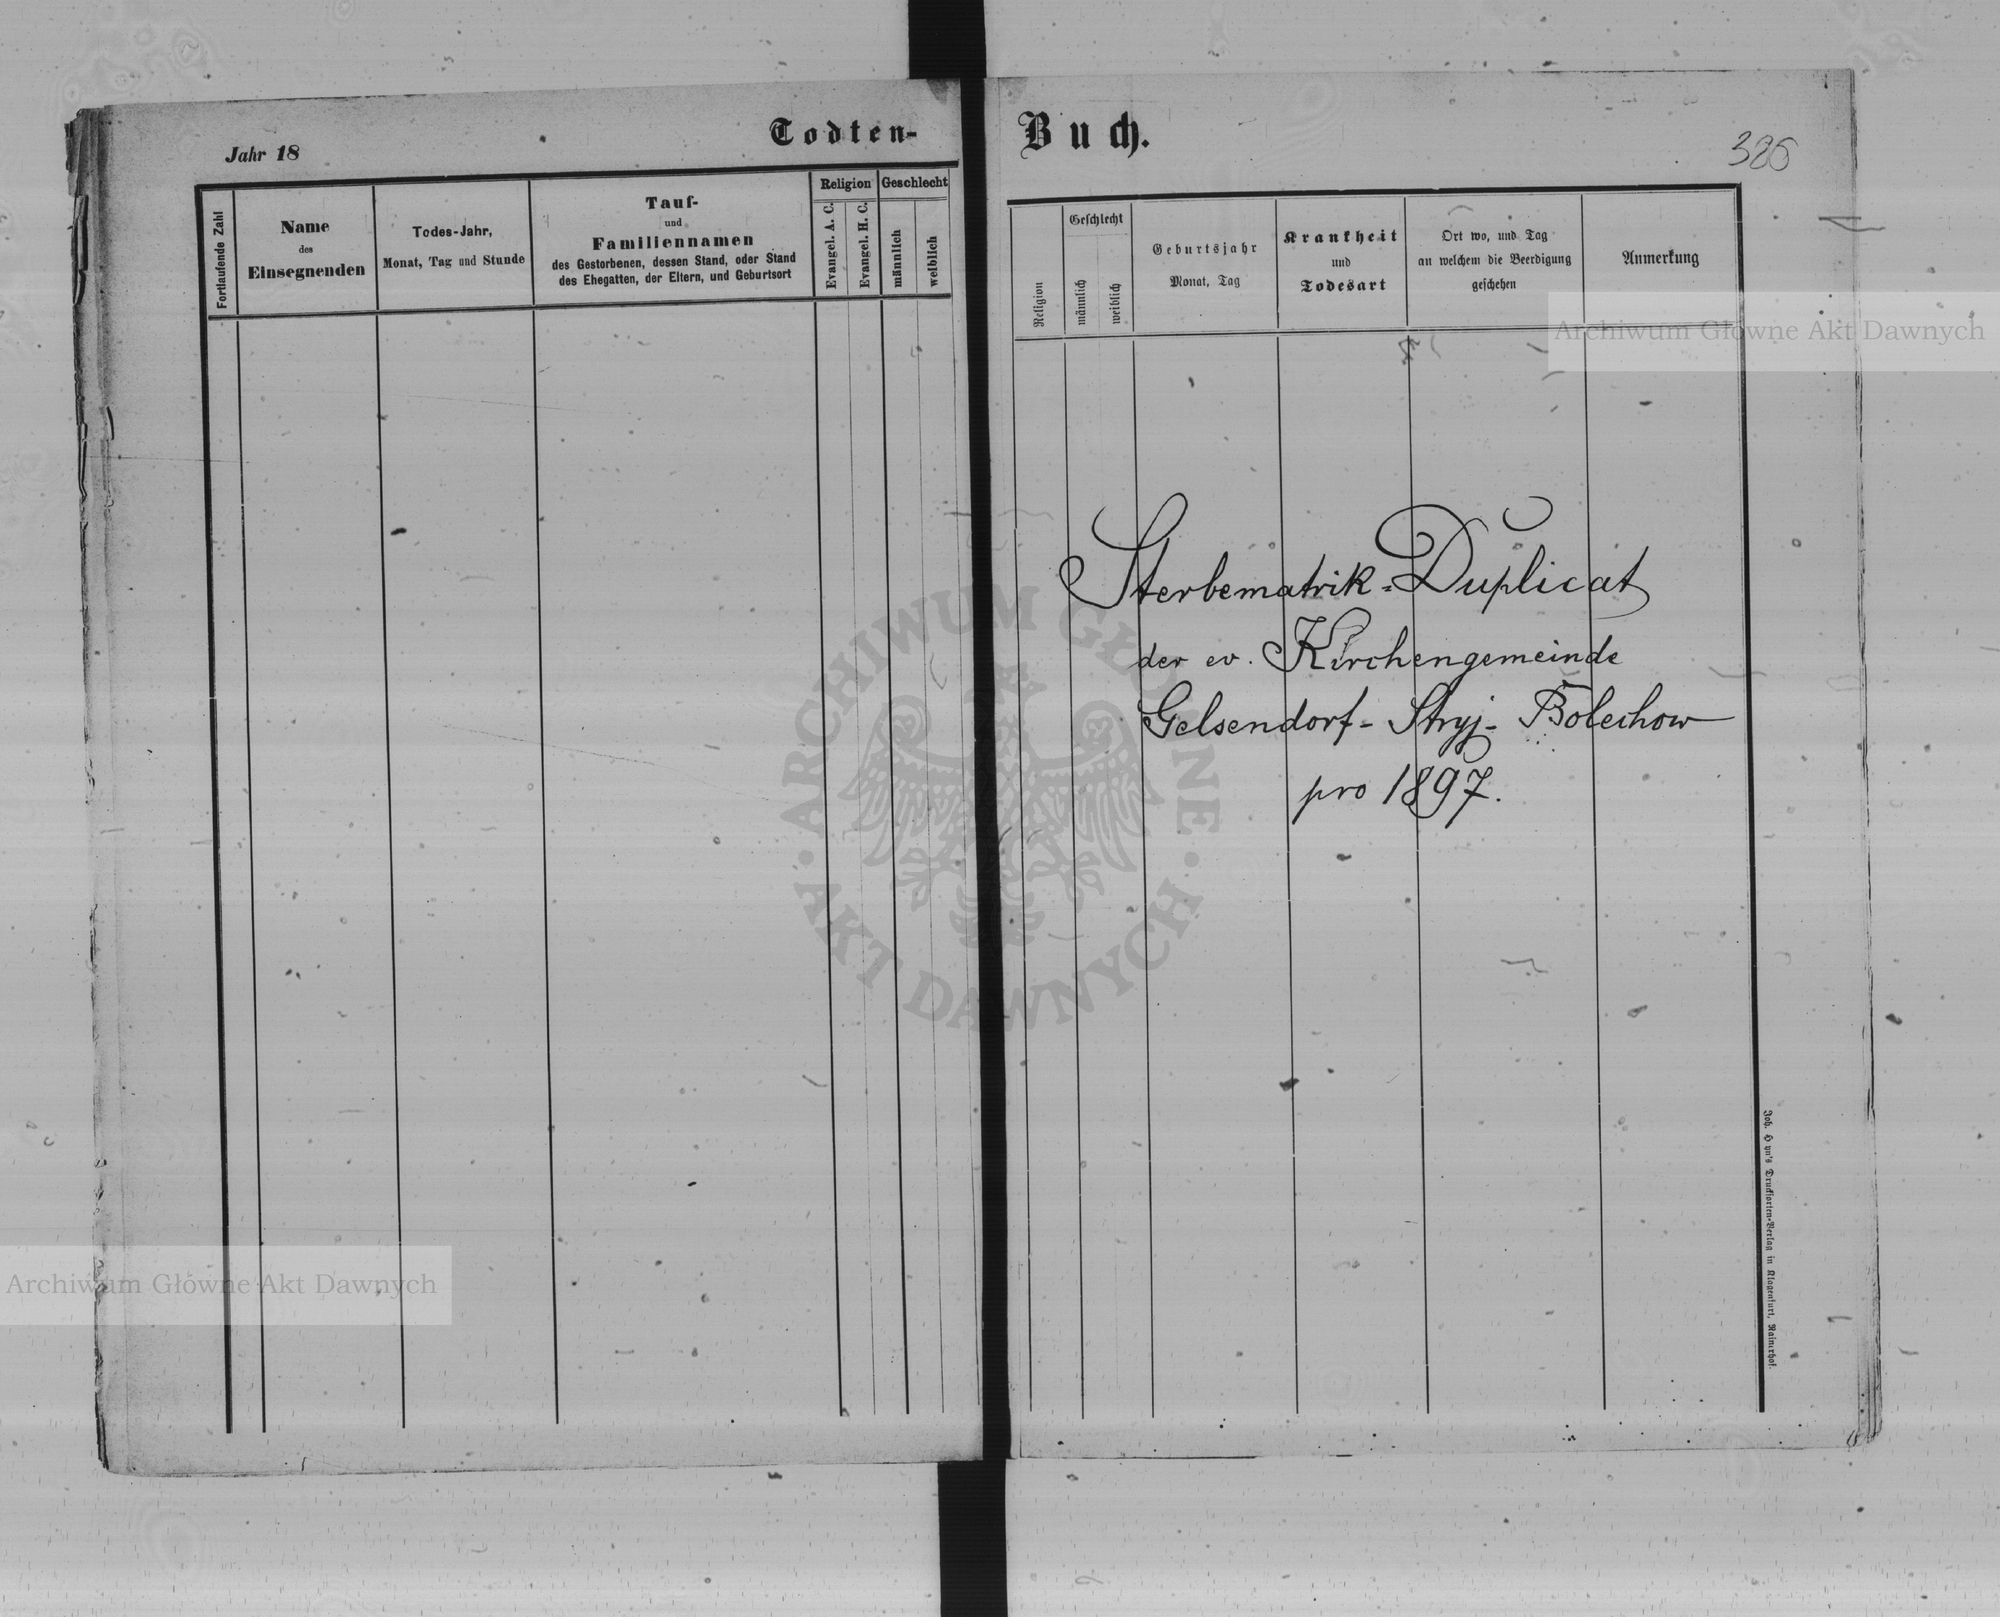 Todten-
Jahr 18
Fortlaufende Zahl
Name
des
Einsegnenden
Todes-Jahr,
Monat, Tag und Stunde
Tauf-
und
Familiennamen
des Gestorbenen, dessen Stand, oder Stand
des Ehegatten, der Eltern, und Geburtsort
Religion
Evangel. A. C.
Evangel. H. C.
Geschlecht
männlich
weiblich
Buch.
Religion
Geschlecht
männlich
weiblich
Geburtsjahr
Monat, Tag
Krankheit
und
Todesart
Ort wo, und Tag
an welchem die Beerdigung
geschehen
Anmerkung
Archiwum Główne Akt Dawnych
Sterbematrik-Duplicat
der ev. Kirchengemeinde
Gelsendorf- Stryj- Bolechow
pro 1897.
ARCHIWUM GŁÓWNE
AKT DAWNYCH
Archiwum Główne Akt Dawnych
Druckforten-Verlag in Klagenfurt,